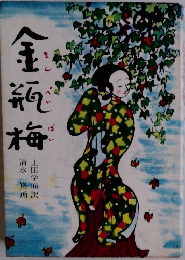 金瓶梅
きんぺいばい
上田学而訳
清水崑画